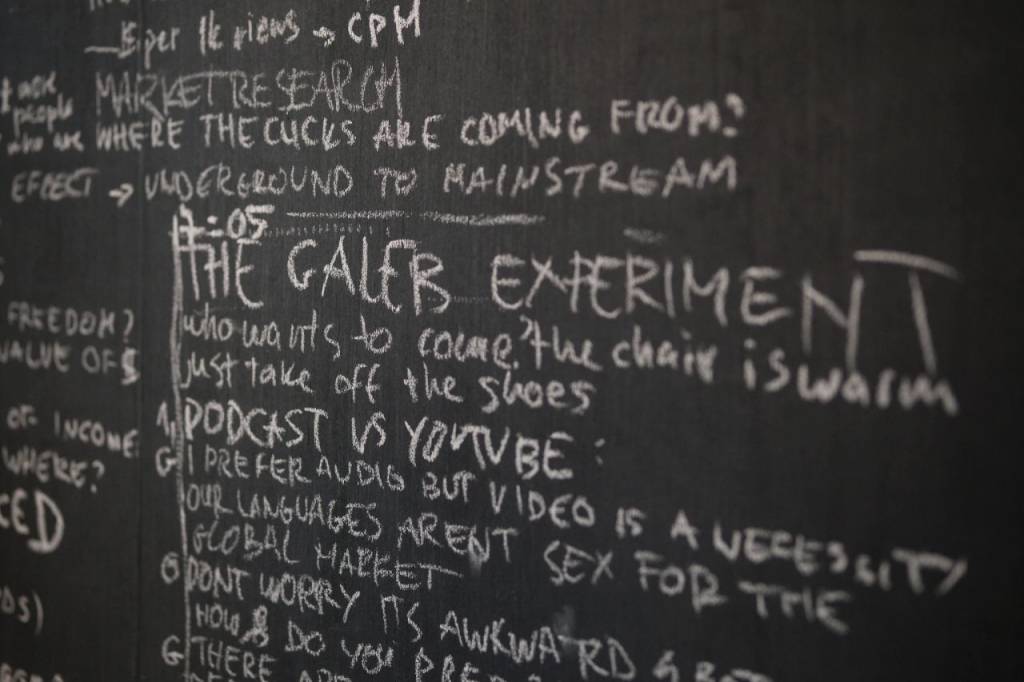 per 1k views → CPM
MARKET RESEARCH
people
who are WHERE THE CUCKS ARE COMING FROM?
EFFECT → UNDERGROUND TO MAINSTREAM
7:05
THE GALEB EXPERIMENT
who wants to come? the chair is warm
FREEDOM?
VALUE OF $
just take off the shoes
1, PODCAST VS YOUTUBE:
OF INCOME
WHERE?
G I PREFER AUDIO BUT VIDEO IS A NECESSITY
OUR LANGUAGES ARENT SEX FOR THE
GLOBAL MARKET
CED
DONT WORRY ITS AWKWARD
HOW DO YOU
G THERE ARE